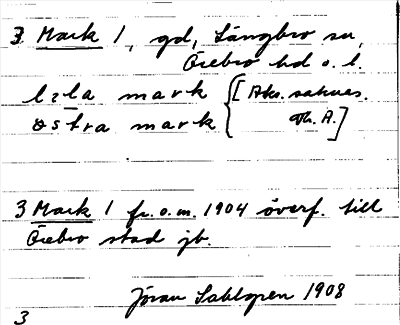 3 Mark 1, gd, Längbro sn,
Örebro hd o. l.
lɩla mark [Aks. saknas.
østra mark Th. A.]
3 Mark 1 fr. o. m. 1904 överf. till
Örebro stad jb.
Jöran Sahlgren 1908
3